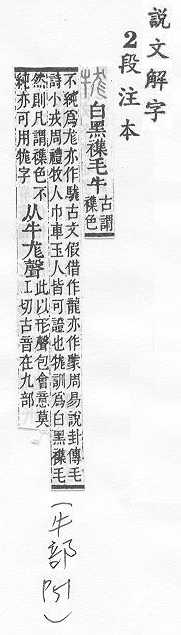 說文解字
2段注本
牻 白黑襍毛牛 古謂
襍色
不純爲尨亦作駹古文假借作龍亦作蒙周易說卦傳毛
詩小戎周禮牧人巾車玉人皆可證也牻訓爲白黑襍毛
然則凡謂襍色不
純亦可用牻字
从牛尨聲
此以形聲包會意莫
江切古音在九部
(牛部 P51)